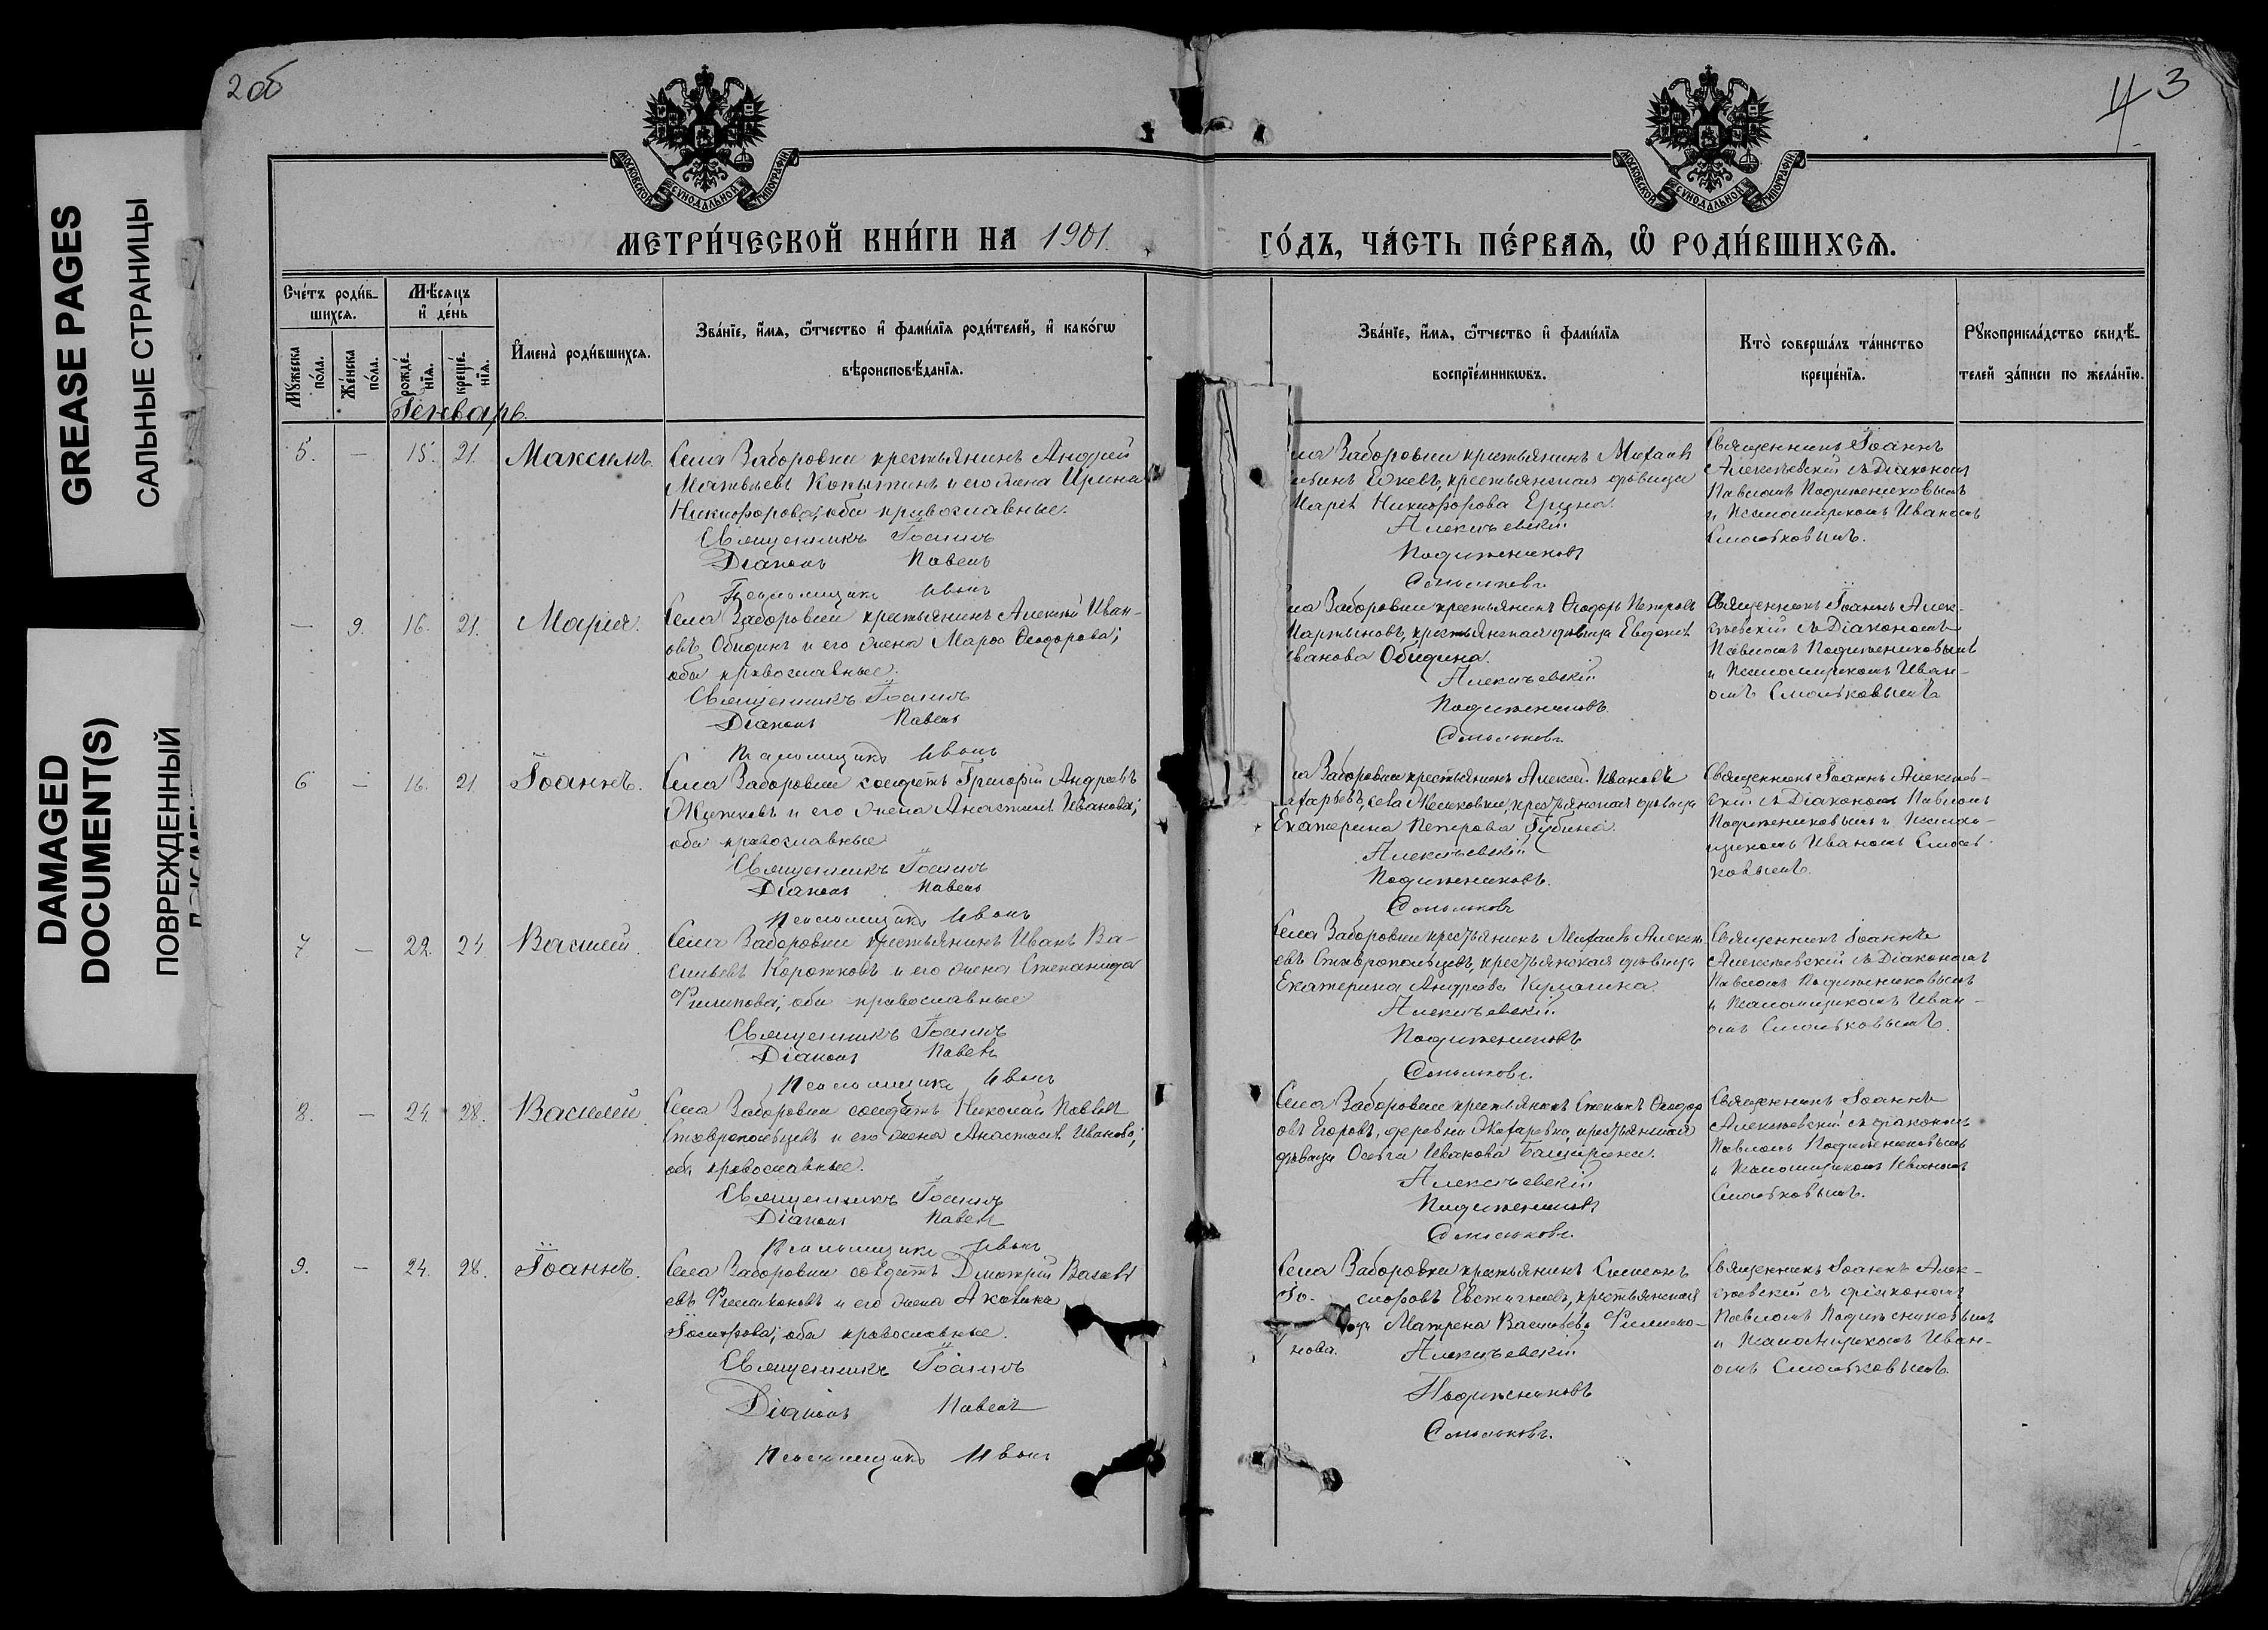 GREASE PAGES
САЛЬНЫЕ СТРАНИЦЫ
DAMAGED
DOCUMENT(S)
ПОВРЕЖДЕННЫЙ
2об
4 3
МОСКОВСКОЙ СѴНОДАЛЬНОЙ ТИПОГРАФІИ
МОСКОВСКОЙ СѴНОДАЛЬНОЙ ТИПОГРАФІИ
МЕТРИ́ЧЕСКОЙ КНИ́ГИ НА 1901.
ГО́ДЪ, ЧА́СТЬ ПЕ́РВАѦ, Ѽ РОДИ́ВШИХСѦ.
Сче́тъ роди́в-
шихсѧ.
Мꙋ́жеска по́ла.
Же́нска по́ла.
Мѣ́сѧцъ
и҆ де́нь
рожде́-
нїѧ.
креще́-
нїѧ.
И҆мена̀ роди́вшихсѧ.
Зва́нїе, и҆́мѧ, ѻ҆́тчество и҆ фами́лїѧ роди́телей, и҆ како́гѡ
вѣроисповѣ́данїѧ.
Зва́нїе, и҆́мѧ, ѻ҆́тчество и҆ фами́лїѧ
воспрїе́мникѡвъ.
Кто̀ соверша́лъ та́инство
креще́нїѧ.
Рꙋкоприкла́дство свидѣ́-
телей за́писи по жела́нїю.
Генварь.
5. — 15. 21. Максимъ.
Села Заборовки крестьянинъ Андрей
Матвѣевъ Копытинъ и его жена Ирина
Никифорова; оба православные.
Священникъ Іоаннъ
Діаконъ Павелъ
Псаломщикъ Иванъ
ла Заборовки крестьянинъ Михаилъ
крестьянская дѣвица
Марія Никифорова
Алексѣевскій
Подъячениковъ
Смольковъ
Священникъ Іоаннъ
Алексѣевскій съ Діакономъ
Павломъ
и Псаломщикомъ Иваномъ
Смольковымъ.
— 9. 16. 21. Марія.
Села Заборовки крестьянинъ Алексѣй Иван-
овъ Обидинъ и его жена Марѳа Ѳеодорова;
оба православные.
Священникъ Іоаннъ
Діаконъ Павелъ
Псаломщикъ Иванъ
ла Заборовки крестьянинъ Ѳеодоръ Петровъ
Мартыновъ, крестьянская дѣвица Евдокія
Иванова Обидина.
Алексѣевскій
Смольковъ.
Священникъ Іоаннъ Алек-
сѣевскій съ Діакономъ
Павломъ
и Псаломщикомъ Иван-
омъ Смольковымъ.
6 — 16. 21 Іоаннъ.
Села Заборовки солдатъ Григорій Андреевъ
и его жена Анастасія Иванова;
оба православные
Священникъ Іоаннъ
Діаконъ Павелъ
Псаломщикъ Иванъ
ла Заборовки крестьянинъ Алексѣй Ивановъ
крестьянская дѣвица
Екатерина Петрова Губина.
Алексѣевскій
Смольковъ
Священникъ Іоаннъ Алексѣев-
скій съ Діакономъ Павломъ
и Псалом-
щикомъ Иваномъ Смоль-
ковымъ.
7 — 22. 24 Василій.
Села Заборовки крестьянинъ Иванъ Ва-
сильевъ Коротковъ и его жена Степанида
Филипова; оба православные
Священникъ Іоаннъ
Діаконъ Павелъ
Псаломщикъ Иванъ
Села Заборовки крестьянинъ Михаилъ Алексѣ-
евъ Ставропольцевъ, крестьянская дѣвица
Екатерина Андреева Кулагина.
Алексѣевскій
Смольковъ.
Священникъ Іоаннъ
Алексѣевскій съ Діакономъ
Павломъ
и Псаломщикомъ Иван-
омъ Смольковымъ.
8. — 24. 28. Василій.
Села Заборовки солдатъ Николай Павловъ
Ставропольцевъ и его жена Анастасія Иванова;
оба православные.
Священникъ Іоаннъ
Діаконъ Павелъ
Псаломщикъ Иванъ
Села Заборовки крестьянинъ Степанъ Ѳеодор
овъ Егоровъ, деревни крестьянская
дѣвица Ольга Иванова Баширина.
Алексѣевскій
Смольковъ.
Священникъ Іоаннъ
Алексѣевскій съ діакономъ
Павломъ
и Псаломщикомъ Иваномъ
Смольковымъ.
9. — 24. 28. Іоаннъ.
Села Заборовки солдатъ Дмитрій Василь
евъ Филимоновъ и его жена Акулина
Іосифова; оба православные.
Священникъ Іоаннъ
Діаконъ Павелъ
Псаломщикъ Иванъ
Села Заборовки крестьянинъ Симеонъ
крестьянская
Матрена Васильева Филимо-
нова.
Алексѣевскій
Смольковъ.
Священникъ Іоаннъ Алек-
сѣевскій съ діакономъ
Павломъ
и Псаломщикомъ Иван-
омъ Смольковымъ.